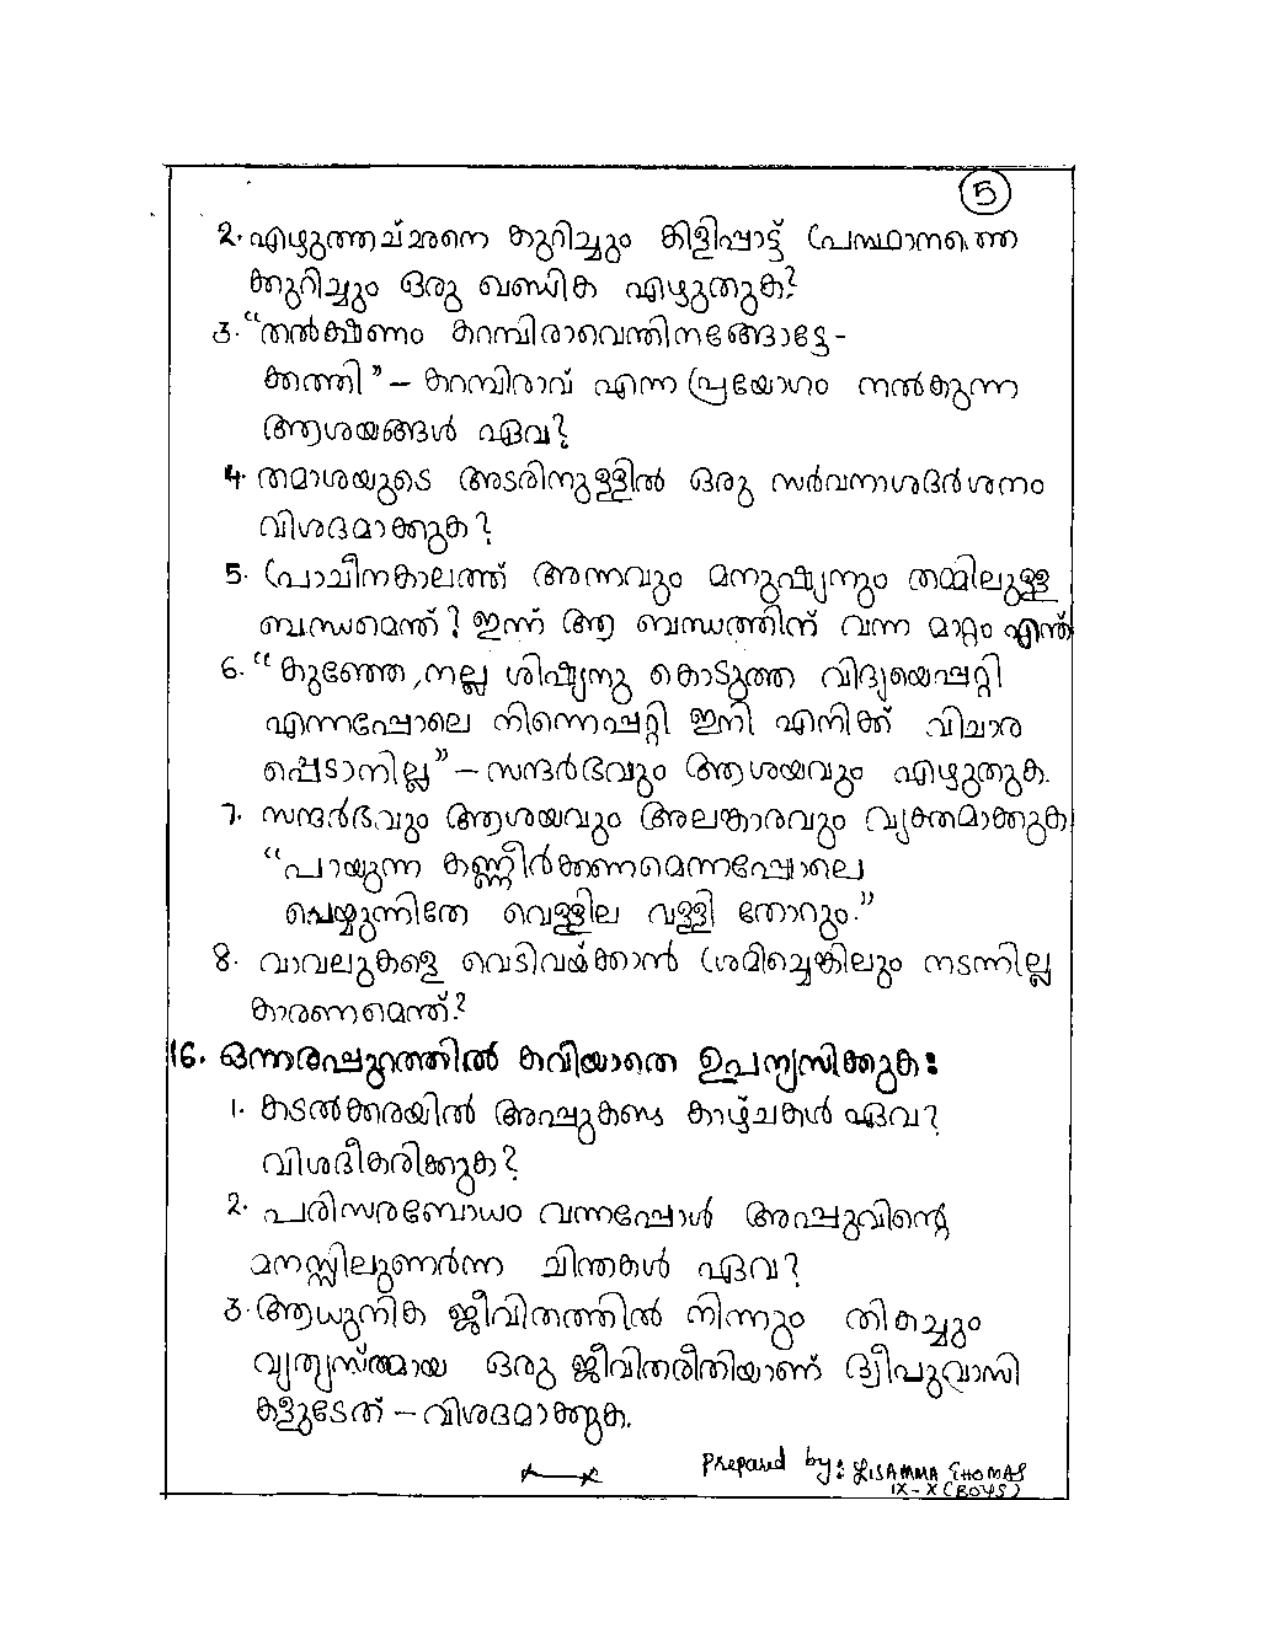 5
2. എഴുത്തച്ഛനെ കുറിച്ചും കിളിപ്പാട്ട് പ്രസ്ഥാനത്തെ
ക്കുറിച്ചും ഒരു ഖണ്ഡിക എഴുതുക?
3. “തൽക്ഷണം കറമ്പിരാവെന്തിനങ്ങോട്ടേ-
ക്കത്തി” – കറമ്പിരാവ് എന്ന പ്രയോഗം നൽകുന്ന
ആശയങ്ങൾ ഏവ?
4. തമാശയുടെ അടരിനുള്ളിൽ ഒരു സർവനാശദർശനം
വിശദമാക്കുക?
5. പ്രാചീനകാലത്ത് അന്നവും മനുഷ്യനും തമ്മിലുള്ള
ബന്ധമെന്ത്? ഇന്ന് ആ ബന്ധത്തിന് വന്ന മാറ്റം എന്ത്
6. “കുഞ്ഞേ, നല്ല ശിഷ്യനു കൊടുത്ത വിദ്യയെപ്പറ്റി
എന്നപോലെ നിന്നെപ്പറ്റി ഇനി എനിക്ക് വിചാര
പ്പെടാനില്ല” – സന്ദർഭവും ആശയവും എഴുതുക.
7. സന്ദർഭവും ആശയവും അലങ്കാരവും വ്യക്തമാക്കുക
“പായുന്ന കണ്ണീർക്കണമെന്നപോലെ
പെയ്യുന്നിതേ വെള്ളില വള്ളി തോറും.”
8. വാവലുകളെ വെടിവയ്ക്കാൻ ശ്രമിച്ചെങ്കിലും നടന്നില്ല
കാരണമെന്ത്?
16. ഒന്നരപ്പുറത്തിൽ കവിയാതെ ഉപന്യസിക്കുക:
1. കടൽക്കരയിൽ അപ്പുകണ്ട കാഴ്ചകൾ ഏവ?
വിശദീകരിക്കുക?
2. പരിസരബോധം വന്നപ്പോൾ അപ്പുവിന്റെ
മനസ്സിലുണർന്ന ചിന്തകൾ ഏവ?
3. ആധുനിക ജീവിതത്തിൽ നിന്നും തികച്ചും
വ്യത്യസ്തമായ ഒരു ജീവിതരീതിയാണ് ദ്വീപുവാസി
കളുടേത് – വിശദമാക്കുക.
Prepared by: LISAMMA THOMAS
IX-X (BOYS)